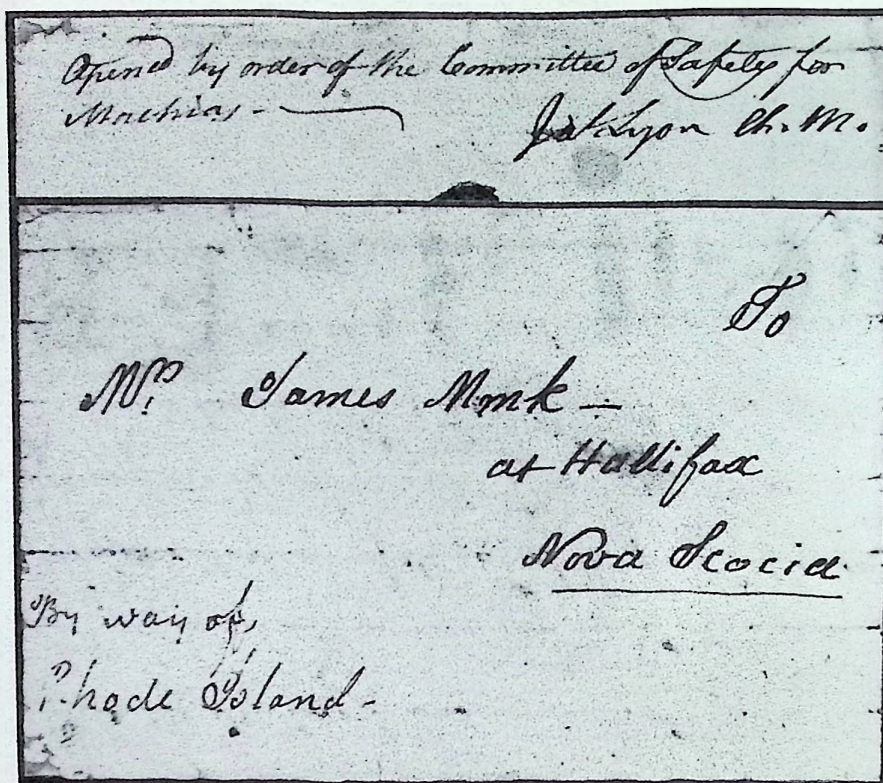 Opened by order of the Committee of Safety for
Machias -
Jas Lyon Ch. M.
To
Mr. James Monk —
at Hallifax
Nova Scocia
By way of,
Rhode Island -